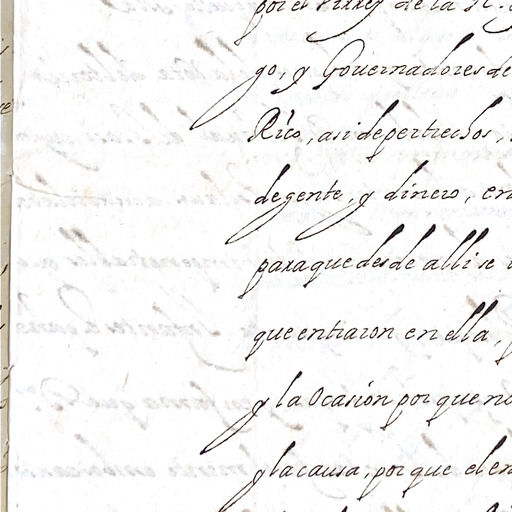 por el Virrey de la N.
go, y Gouernadores de
Rico, asi de pertrechos,
de gente, y dinero, en
para que desde alli se
que entraron en ella,
y la Ocasion por que no
y la causa, por que el en